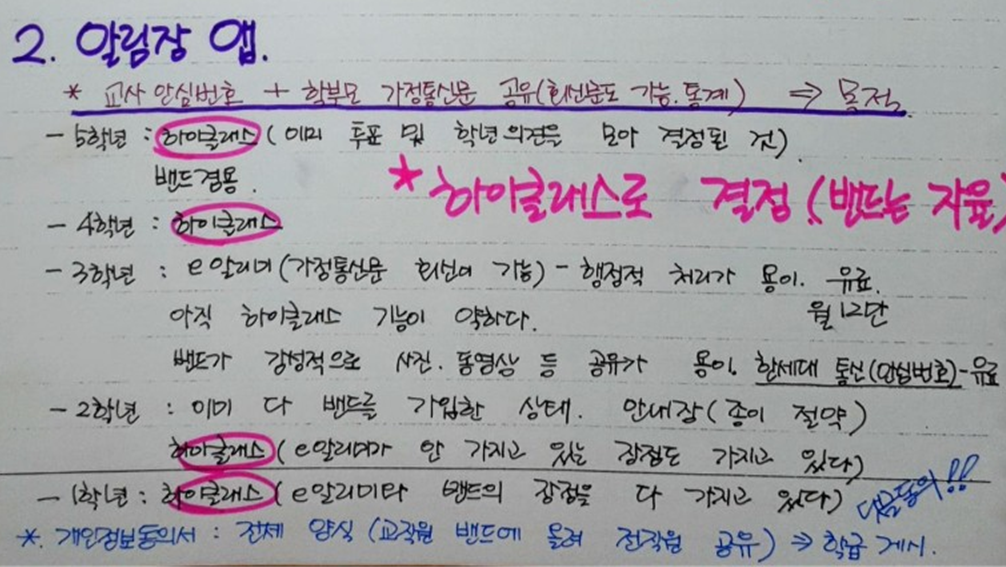 2. 알림장 앱.
* 교사 안심번호 + 학부모 가정통신문 공유(회신문도 가능. 통계) ⇒ 목적.
- 5학년 : 하이클래스 (이미 투표 및 학년 의견을 모아 결정된 것).
밴드겸용.
* 하이클래스로 결정 (밴드는 자율)
- 4학년 : 하이클래스
- 3학년 : e알리미(가정통신문 회신이 가능) - 행정적 처리가 용이. 유료.
월 12만
아직 하이클래스 기능이 약하다.
밴드가 감성적으로 사진. 동영상 등 공유가 용이. 한세대 통신(안심번호)-유료
- 2학년 : 이미 다 밴드를 가입한 상태. 안내장(종이 절약)
하이클래스 (e알리미가 안 가지고 있는 장점도 가지고 있다)
- 1학년 : 하이클래스 (e알리미타 밴드의 장점을 다 가지고 있다)
*. 개인정보동의서 : 전체 양식 (교직원 밴드에 올려 전직원 공유) ⇒ 학급 게시.